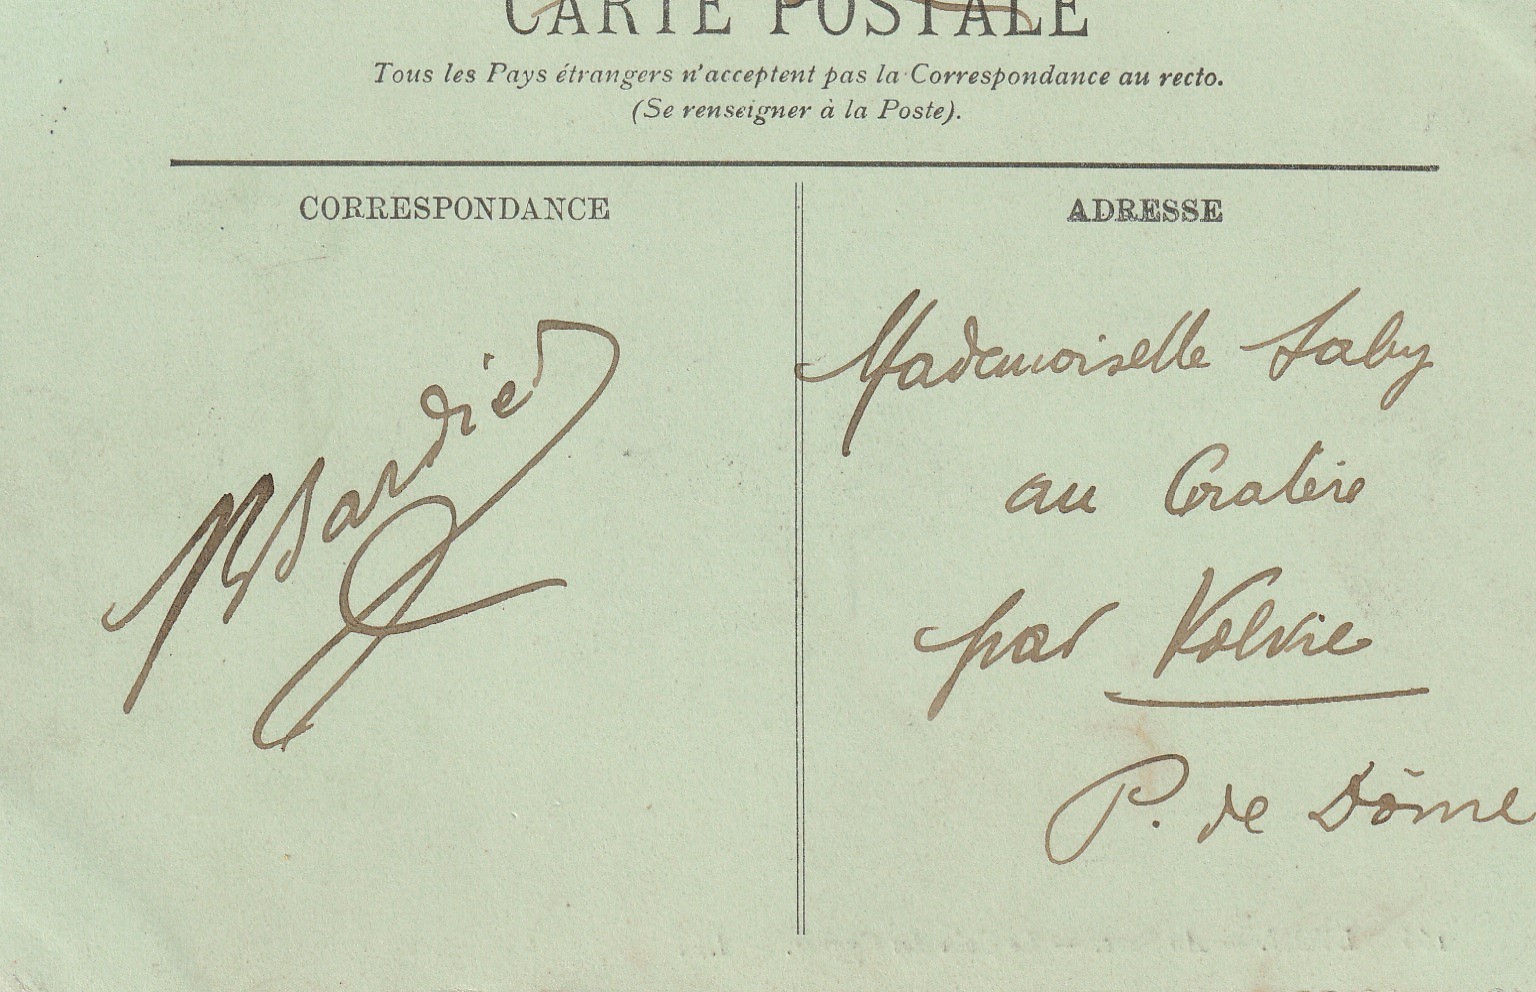 CARTE POSTALE
Tous les Pays étrangers n'acceptent pas la Correspondance au recto.
(Se renseigner à la Poste).
CORRESPONDANCE
ADRESSE
Mademoiselle Saby
au Cratère
par Volvic
P. de Dôme